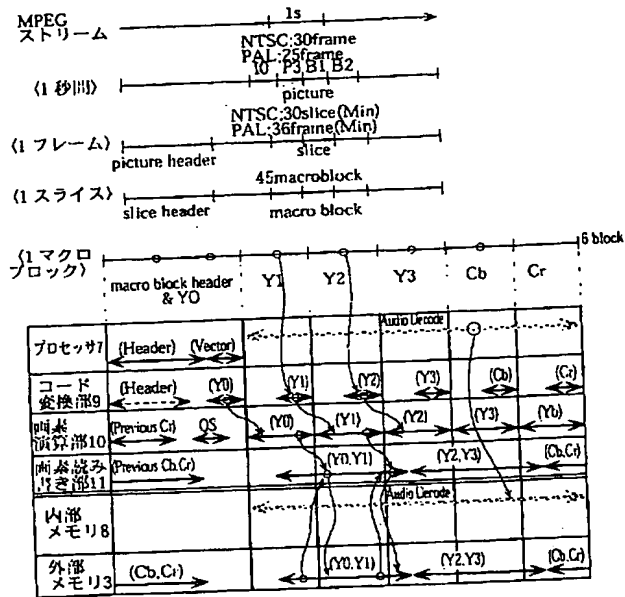 MPEG
ストリーム
1s
NTSC:30frame
PAL:25frame
I0 P3 B1 B2
〈1 秒間〉
picture
NTSC:30slice(Min)
PAL:36frame(Min)
〈1 フレーム〉
picture header
slice
45macroblock
〈1 スライス〉
slice header
macro block
6 block
〈1 マクロ
ブロック〉
macro block header
& Y0
Y1
Y2
Y3
Cb
Cr
プロセッサ7
(Header)
(Vector)
Audio Decode
コード
変換部9
(Header)
(Y0)
(Y1)
(Y2)
(Y3)
(Cb)
(Cr)
画素
演算部10
(Previous Cr)
QS
(Y0)
(Y1)
(Y2)
(Y3)
(Yb)
画素読み
書き部11
(Previous Cb,Cr)
(Y0,Y1)
(Y2,Y3)
(Cb,Cr)
内部
メモリ8
Audio Decode
外部
メモリ3
(Cb,Cr)
(Y0,Y1)
(Y2,Y3)
(Cb,Cr)